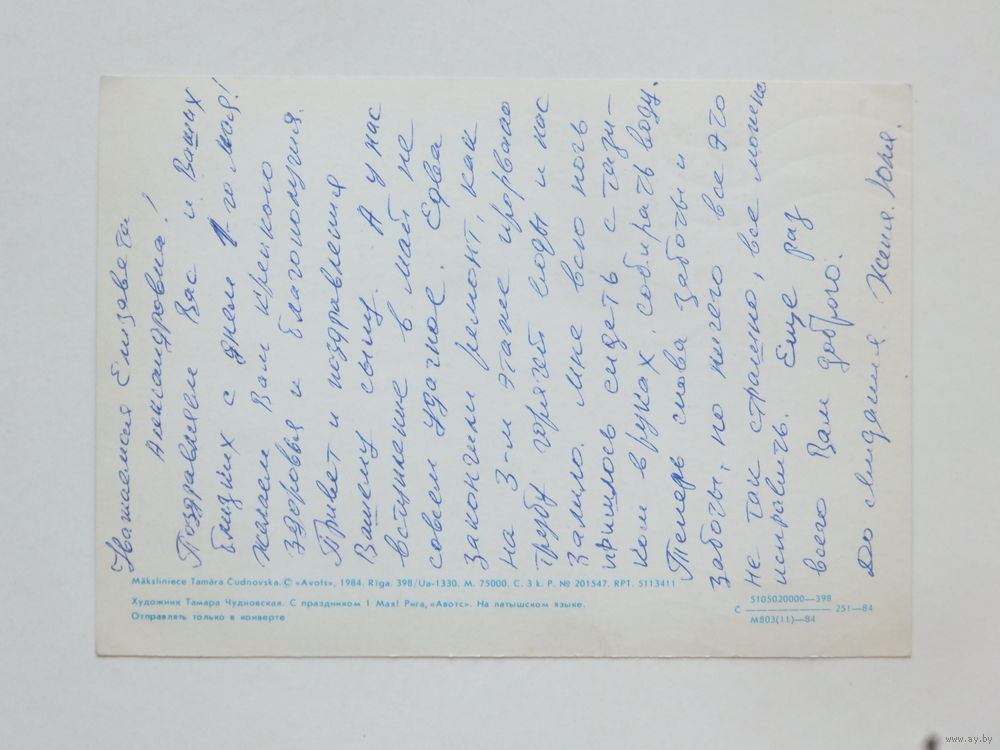 Уважаемая Елизавета
Александровна!
Поздравляем Вас и Ваших
близких с днем 1-го мая!
Желаем Вам крепкого
здоровья и благополучия.
Привет и поздравления
Вашему сыну. А у нас
вступление в май не
совсем удачное. Едва
закончили ремонт, как
на 3-м этаже прорвало
трубу горячей воды и нас
залило. Мне всю ночь
пришлось сидеть с тази-
ком в руках, собирать воду.
Теперь снова заботы и
заботы, но ничего все это
не так страшно, все можно
исправить. Еще раз
всего Вам доброго.
До свидания. Женя, Юля.
Māksliniece Tamāra Čudnovska. © «Avots», 1984. Rīga. 398/Ua-1330. M. 75000. C. 3 k. P. № 201547. RPT. 5113411
Художник Тамара Чудновская. С праздником 1 Мая! Рига, «Авотс». На латышском языке.
Отправлять только в конверте
С 5105020000—398 251—84
М803(11)—84
www.ay.by